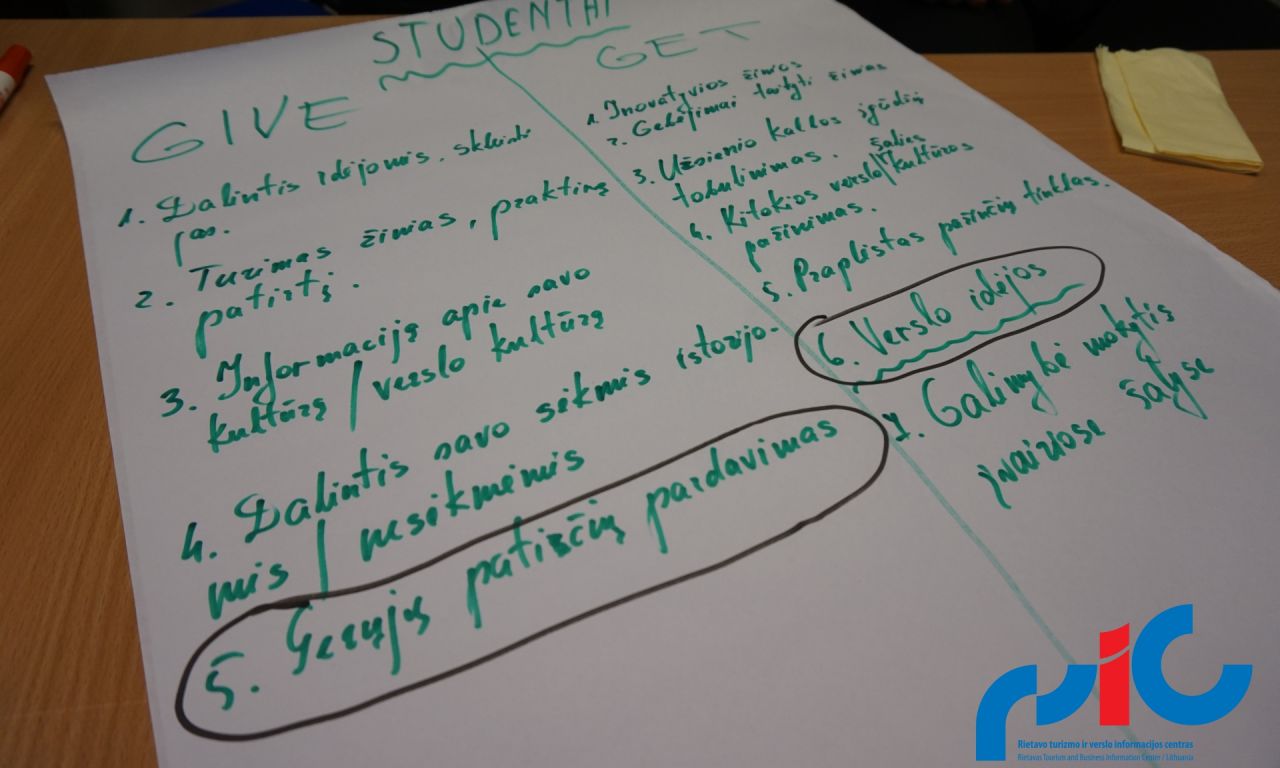 STUDENTAI
GIVE
1. Dalintis idėjomis, skleisti
jas.
2. Turimas žinias, praktinę
patirtį.
3. Informaciją apie savo
kultūrą / verslo kultūrą
4. Dalintis savo sėkmės istorijo-
mis / nesėkmėmis
5. Gerųjų patirčių pardavimas
GET
1. Inovatyvios žinios
2. Gebėjimai taikyti žinias
3. Užsienio kalbos įgūdžių
tobulinimas.
4. Kitokios verslo/šalies kultūros
pažinimas.
5. Praplėstas pažinčių tinklas.
6. Verslo idėjos
7. Galimybė mokytis
įvairiose šalyse
PiC
Rietavo turizmo ir verslo informacijos centras
Rietavas Tourism and Business Information Center / Lithuania